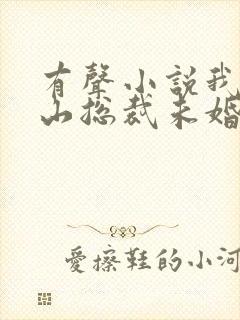 有聲小說我
山總裁未婚
愛擦鞋的小河